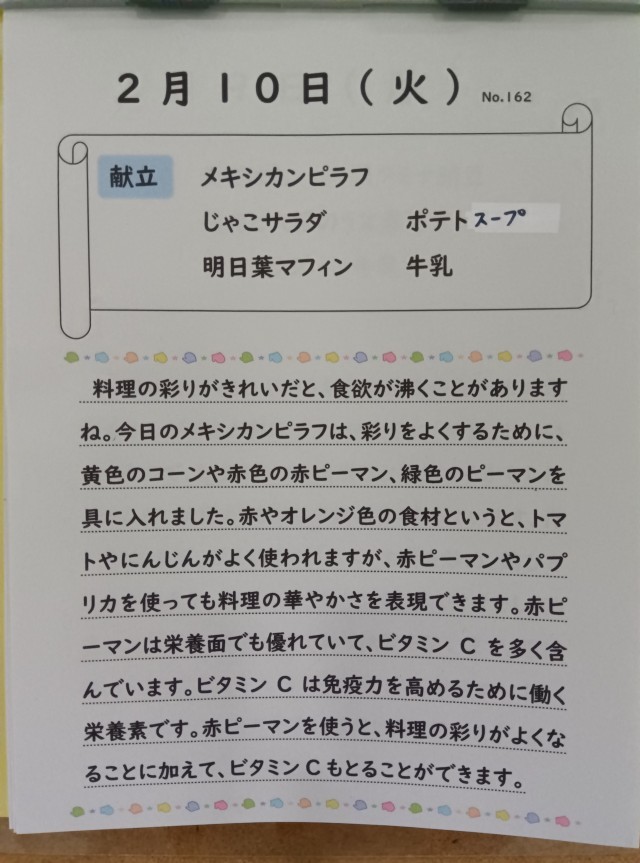 2月10日(火) No.162
献立 メキシカンピラフ
じゃこサラダ ポテトスープ
明日葉マフィン 牛乳
料理の彩りがきれいだと、食欲が沸くことがあります
ね。今日のメキシカンピラフは、彩りをよくするために、
黄色のコーンや赤色の赤ピーマン、緑色のピーマンを
具に入れました。赤やオレンジ色の食材というと、トマ
トやにんじんがよく使われますが、赤ピーマンやパプ
リカを使っても料理の華やかさを表現できます。赤ピ
ーマンは栄養面でも優れていて、ビタミン C を多く含
んでいます。ビタミン C は免疫力を高めるために働く
栄養素です。赤ピーマンを使うと、料理の彩りがよくな
ることに加えて、ビタミン C もとることができます。